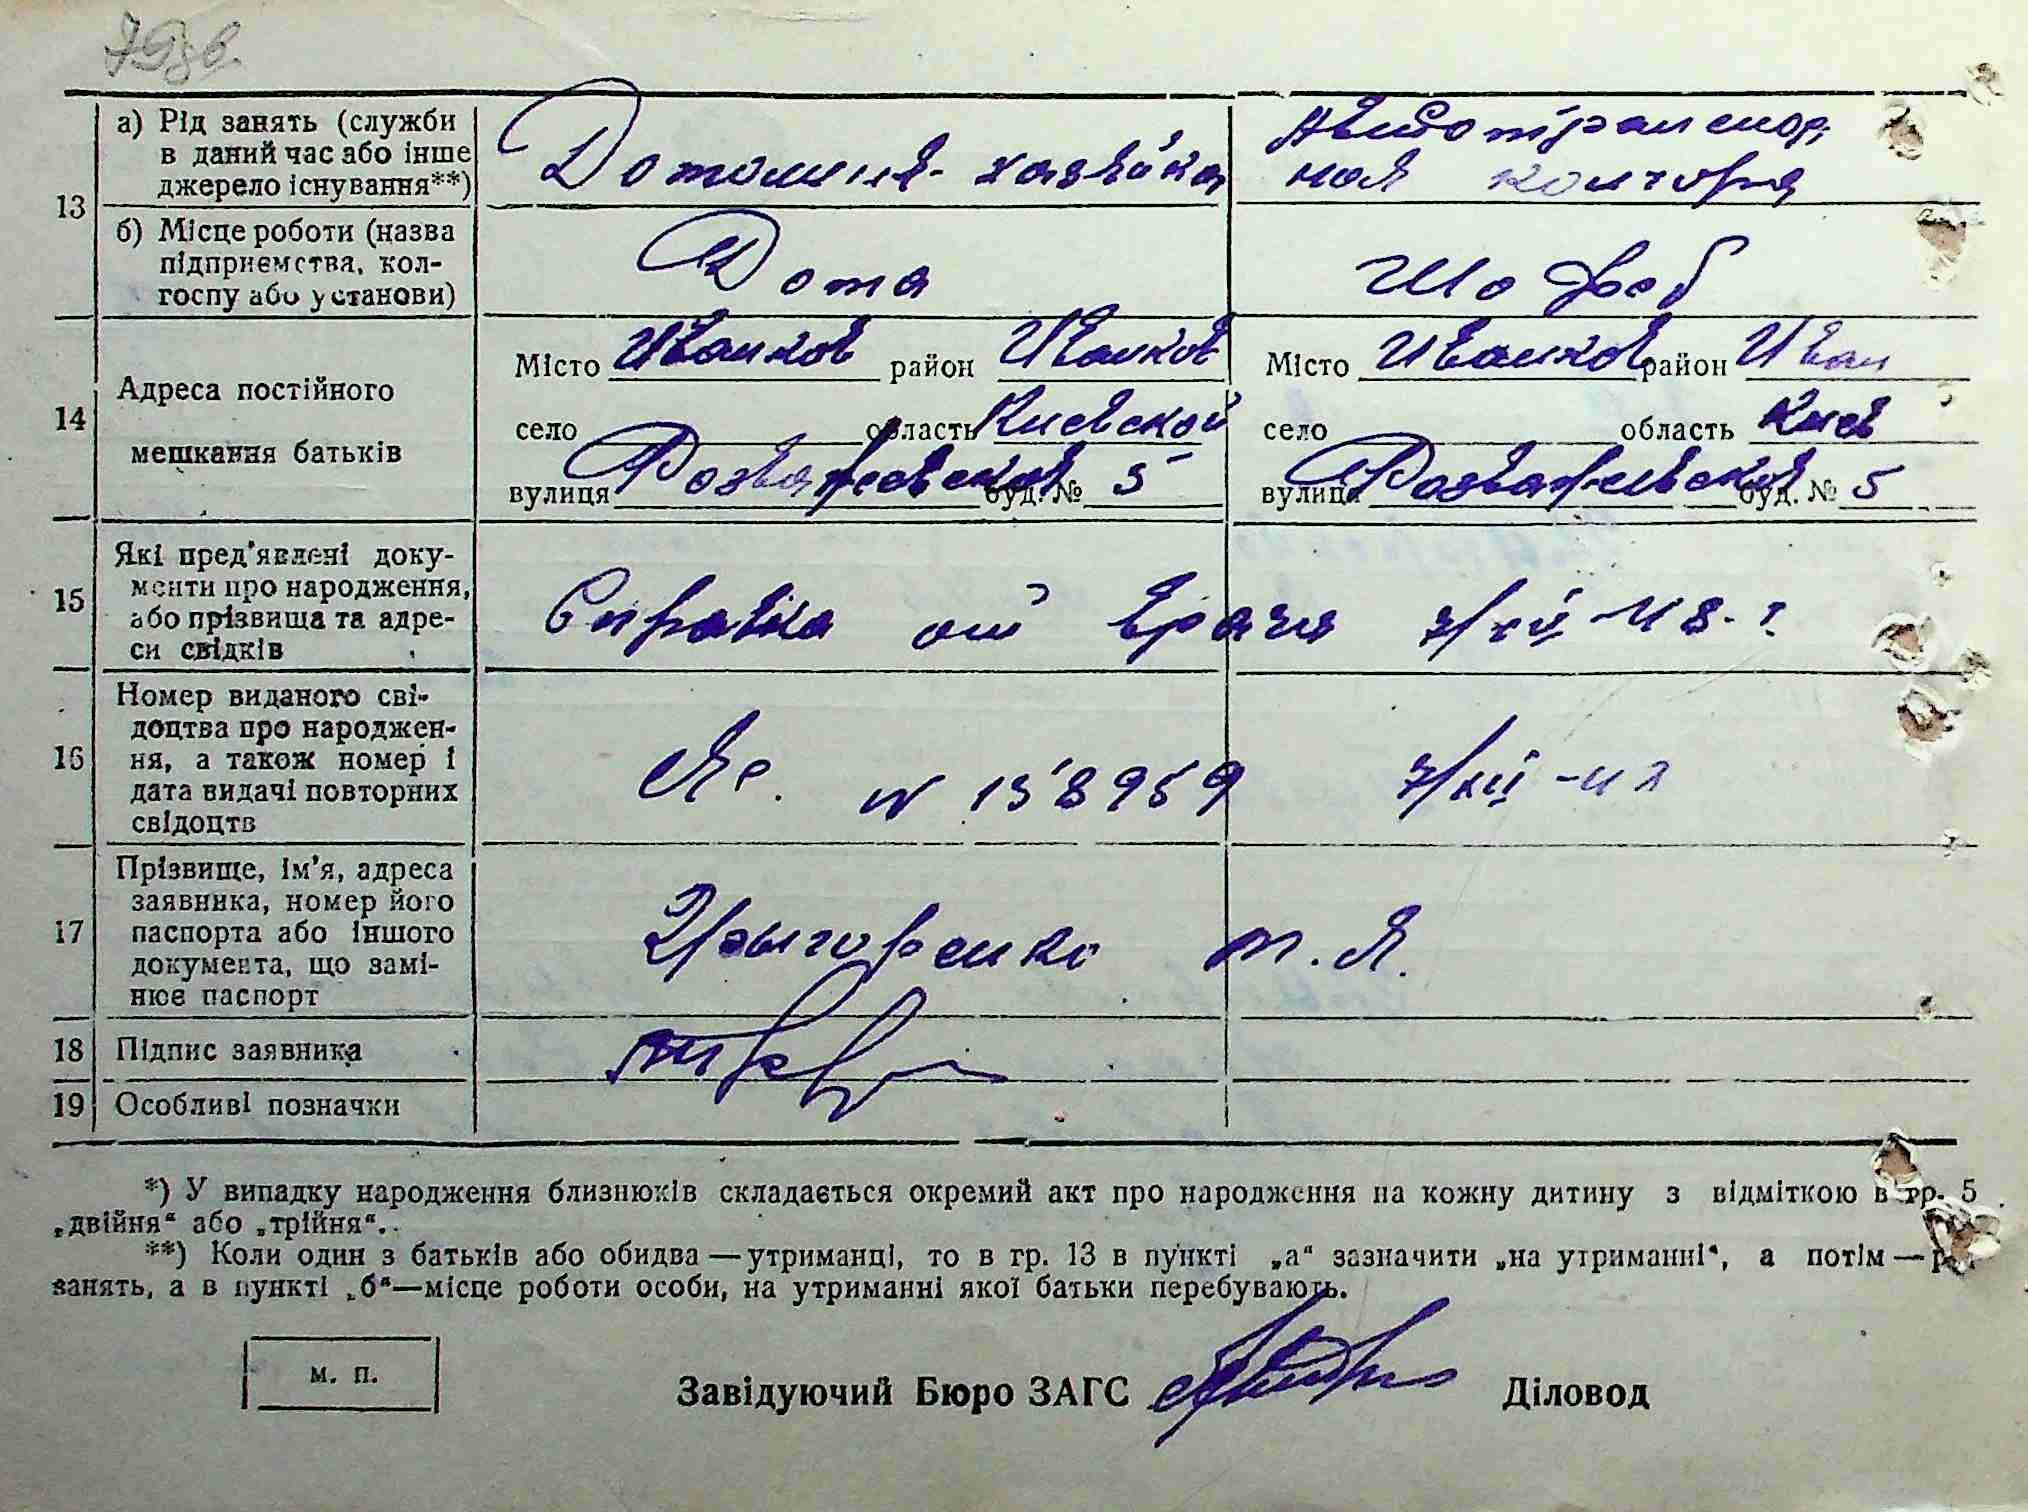 79зв.
13
а) Рід занять (служби
в даний час або інше
джерело існування**)
Домашняя хазяйка
Автотранспор.
ная контора
б) Місце роботи (назва
підприємства, кол-
госпу або установи)
Дома
Шофер
14
Адреса постійного
мешкання батьків
Місто Иванков район Иванков
село область Киевской
вулиця Розважевская буд. № 5
Місто Иванков район Иван
село область Киев
вулиця Розважевская буд. № 5
15
Які пред'явлені доку-
менти про народження,
або прізвища та адре-
си свідків
Справка от врача 7/XII
16
Номер виданого сві-
доцтва про народжен-
ня, а також номер і
дата видачі повторних
свідоцтв
ЯР. N 158959 7/XII
17
Прізвище, ім'я, адреса
заявника, номер його
паспорта або іншого
документа, що замі-
нює паспорт
Григоренко т. Я.
18 Підпис заявника
19 Особливі позначки
*) У випадку народження близнюків складається окремий акт про народження на кожну дитину з відміткою в гр. 5
„двійня“ або „трійня“.
**) Коли один з батьків або обидва — утриманці, то в гр. 13 в пункті „а“ зазначити „на утриманні“, а потім —
занять, а в пункті „б“—місце роботи особи, на утриманні якої батьки перебувають.
м. п.
Завідуючий Бюро ЗАГС
Діловод